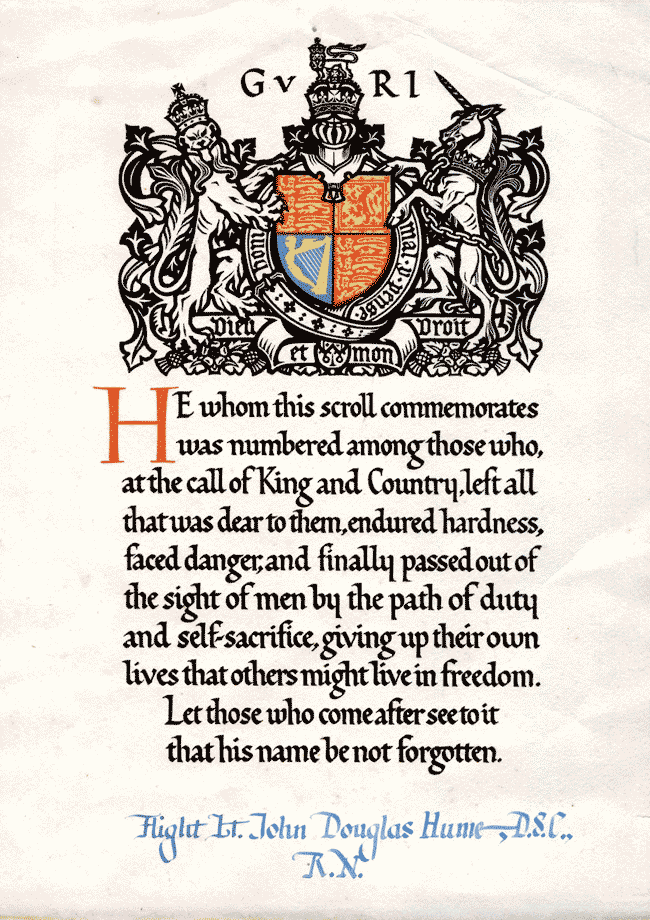 G V R I
Honi
mal·y·pense
Dieu Droit
et mon
HE whom this scroll commemorates
was numbered among those who,
at the call of King and Country, left all
that was dear to them, endured hardness,
faced danger, and finally passed out of
the sight of men by the path of duty
and self-sacrifice, giving up their own
lives that others might live in freedom.
Let those who come after see to it
that his name be not forgotten.
Flight Lt. John Douglas Hume—, D.S.C.,
R.N.